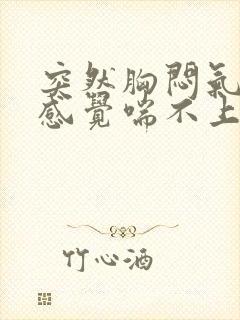 突然胸悶氣
感覺喘不上
竹心酒